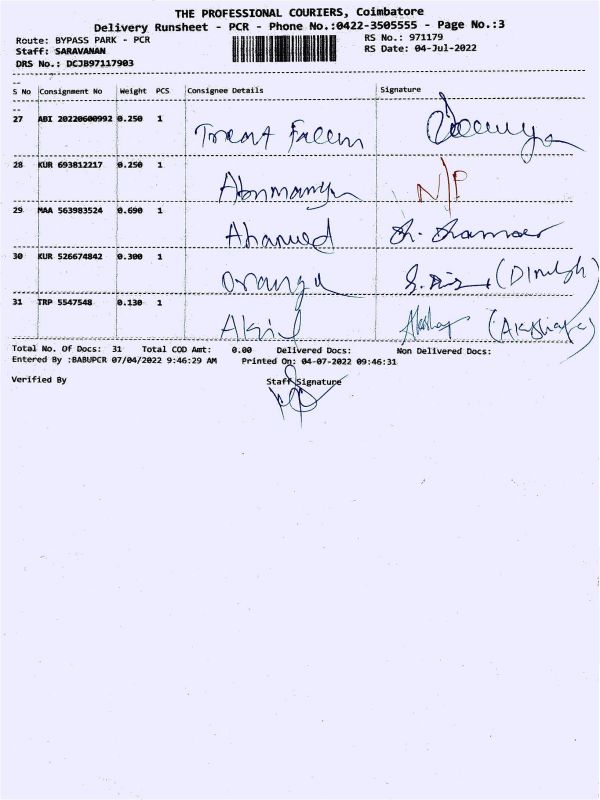 THE PROFESSIONAL COURIERS, Coimbatore
Delivery Runsheet - PCR - Phone No.:0422-3505555 - Page No.:3
Route: BYPASS PARK - PCR RS No.: 971179
Staff: SARAVANAN RS Date: 04-Jul-2022
DRS No.: DCJB97117903
S No Consignment No Weight PCS Consignee Details Signature
27 ABI 20220600992 0.250 1
28 KUR 693812217 0.250 1 N/P
29 MAA 563983524 0.690 1 Ahamed
30 KUR 526674842 0.300 1 (Dinesh)
31 TRP 5547548 0.130 1 Akil (Akshaya)
Total No. Of Docs: 31 Total COD Amt: 0.00 Delivered Docs: Non Delivered Docs:
Entered By :BABUPCR 07/04/2022 9:46:29 AM Printed On: 04-07-2022 09:46:31
Verified By Staff Signature